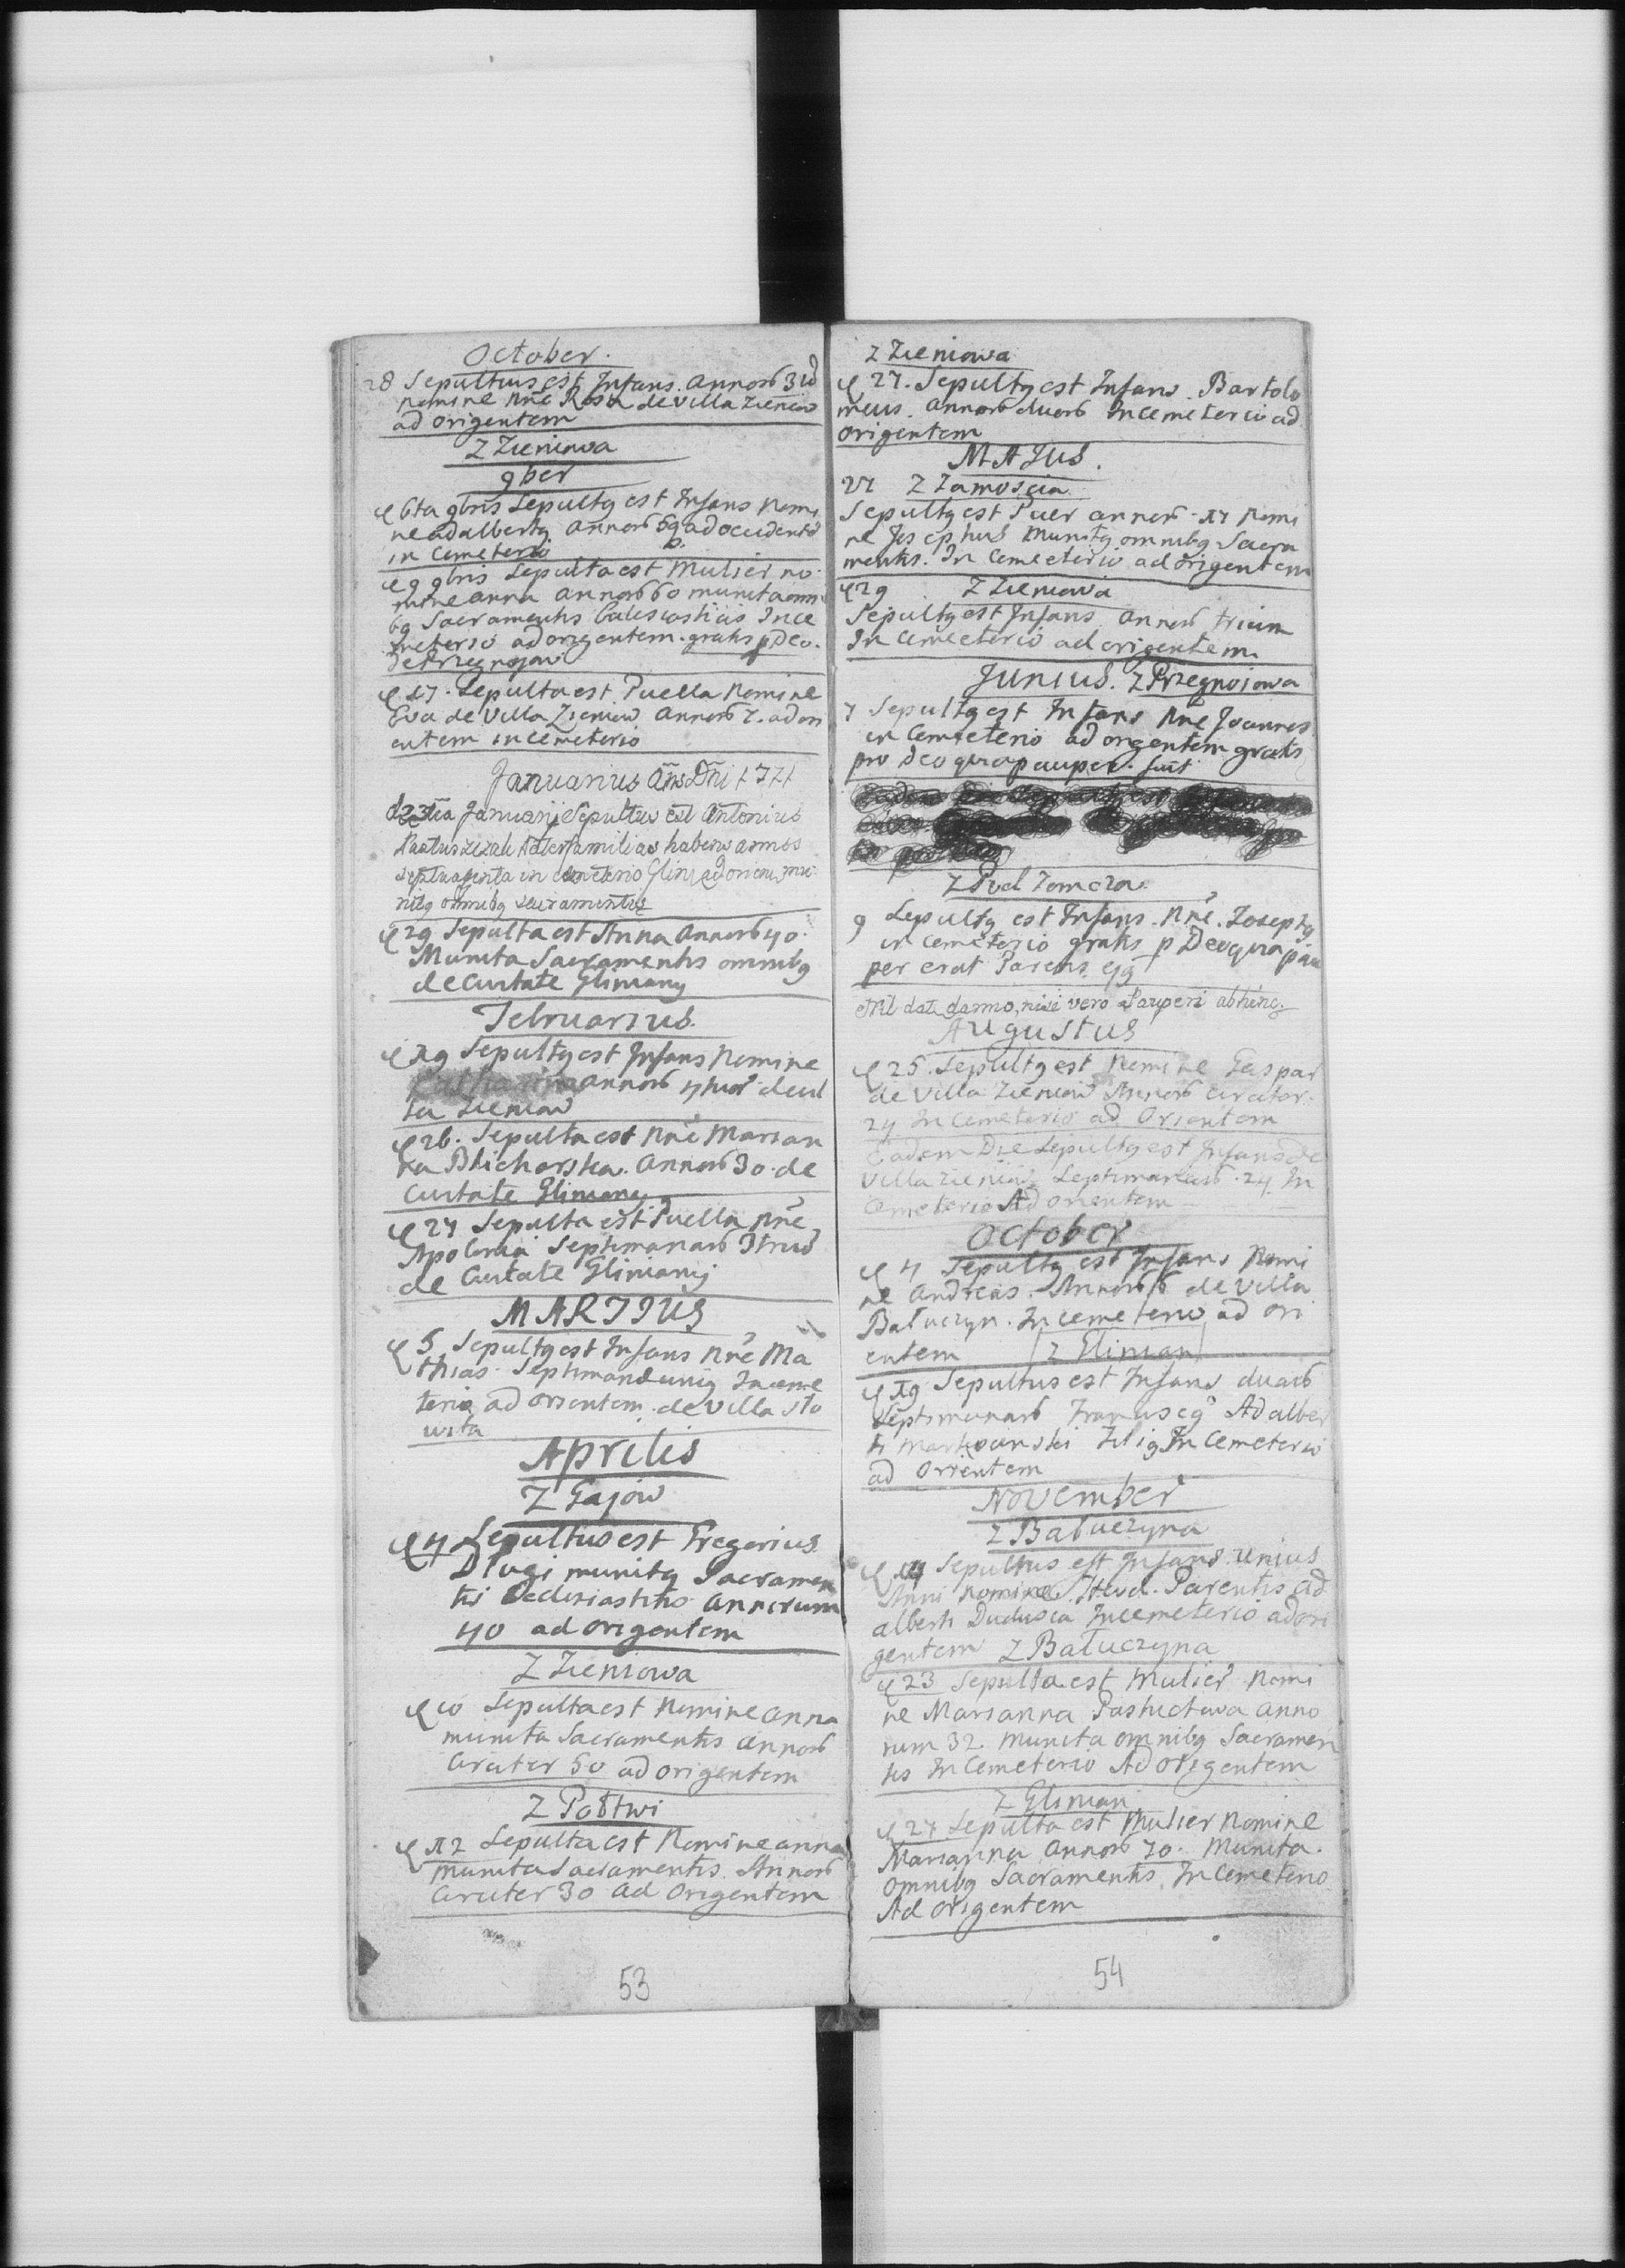 October.
28 Sepultus est Infans. Annorũ 3ũ
nomine nñe Rosa de villa Zieniow
ad origentem
Z Zieniowa
9ber
6ta 9bris Sepultq est Infans Nomi
ne adalbertq annorũ ad occidentẽ
in Cemeterio
9 9bris Sepulta est Mulier no
mine anna annorũ 60 munita omni
bq Sacramentis In Ce
meterio ad origentem. gratis p Deo.
de Przegnojow
17. Sepulta est Puella Nomine
Eva de Villa Zieniow Annorũ 7. ad ori
entem in cemeterio
Januarius Añno Dñi 1771
23tia Januarij Sepultus est Antonius
Paterfamilias habens annos
septuaginta in Cemeterio Glin: ad orien: mu
nitq omnibq sacramentis
29 Sepulta est Anna Annorũ 40.
Munita Sacramentis omnibq
de Civitate Gliniany
Februarius.
19 Sepultq est Infans Nomine
Catharina annorũ 4tuor de vil
la Zieniow
26. Sepulta est Nñe Marian
na Blicharska. Annorũ 30. de
Civitate Gliniany
27 Sepulta est Puella Nñe
Apolonia Septimanarũ 3triũ
de Civitate Gliniany
MARTIUS
5 Sepultq est Infans Nñe Ma
thias Septimanæ uniq In ceme
terio ad orientem. de Villa Sło
wita
Aprilis
Z Gajow
4 Sepultus est Gregorius
Dlugi munitq Sacramen
tis Ecclesiasticis Annorum
40 ad origentem
Z Zieniowa
10 Sepulta est Nomine anna
munita Sacramentis annorũ
Circiter 50 ad origentem
Z Połtwi
12 Sepulta est Nomine anna
munita Sacramentis Annorũ
Circiter 30 ad Origentem
53
Z Zieniowa
27. Sepultq est Infans Bartolo
meus. annorũ duorũ In cemeterio ad
origentem
MAJUS.
21 Z Zamoscia
Sepultq est Puer annorũ 17 Nomi
ne Josephus Munitq omnibq Sacra
mentis. In Cemeterio ad origentem
29 Z Zieniowa
Sepultq est Infans Annorũ trium
In Cemeterio ad origentem.
Junius. Z Przegnojowa
7 Sepultq est Infans Nñe Joannes
in Cemeterio ad origentem gratis
pro Deo quia pauper. fuit
Z Pod Zamcza
9 Sepultq est Infans. Nñe. Josephq
in cemeterio gratis p Deo quia pau
per erat Parens ejq
Nil dat damno, nisi vero Pauperi abhinc
Augustus
25. Sepultq est Nomine Gaspar
de Villa Zieniow Annorũ circiter
24 In Cemeterio ad Orientem
Eadem Die Sepultq est Infans de
Villa Zieniow Septimanarũ. 24. In
Cemeterio Ad orientem
October
4 Sepultq est Infans Nomi
ne Andreas. Annorũ 6 de Villa
Bałuczyn. In cemeterio ad ori
entem Z Glinian
19 Sepultus est Infans duarũ
Septimanarũ Adalber
ti Filiq In Cemeterio
ad Orientem
November
Z Bałuczyna
14 Sepultus est Infans unius
Anni nomine Parentis ad
alberti Dudusia In cemeterio ad ori
gentem Z Bałuczyna
23 Sepulta est Mulier Nomi
ne Marianna Pastuchowa Anno
rum 32 munita omnibq Sacramen
tis In Cemeterio Ad origentem
Z Glinian
27 Sepulta est Mulier Nomine
Marianna Annorũ 70. Munita
Omnibq Sacramentis In Cemeterio
Ad origentem
54